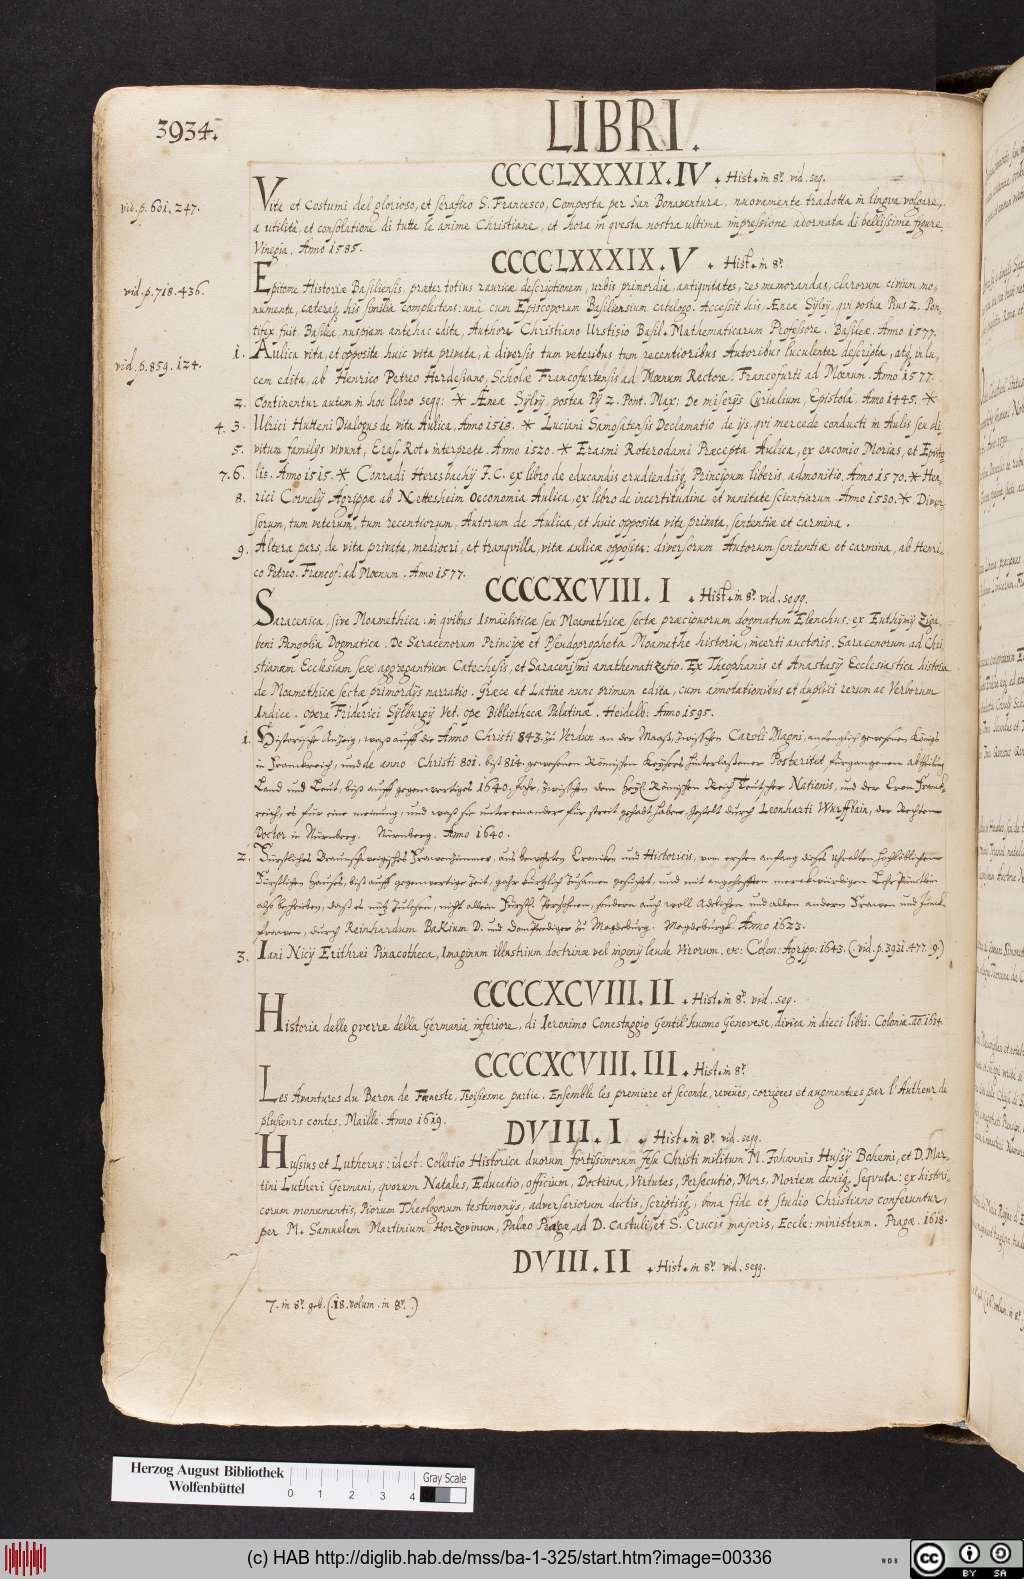 3934.
LIBRI.
CCCCLXXXIX. IV . Hist. in 8º. vid. seq.
vid. p. 601. 247.
Vita et costumi del glorioso, et serafico S. Francesco, Composta per San Bonaventura, nuovamente tradotta in lingua volgare,
a utilità, et consolatione di tutte le anime Christiane, et hora in questa nostra ultima impressione adornata di bellissime figure.
Vinegia. Anno 1585.
CCCCLXXXIX. V . Hist. in 8º.
vid. p. 718. 436.
Epitome Historiæ Basiliensis, præter totius rauricæ descriptionem, urbis primordia, antiquitates, res memorandas, clarorum civium mo-
numenta, cæteraq his similia complectens: unà cum Episcoporum Basiliensium catalogo. Accessit his, Æneæ Sylvij, qvi postea Pius 2. Pon-
tifex fuit Basilea, nuspiam antehac edita, Authore Christiano Urstisio Basil. Mathematicarum Professore. Basileæ. Anno 1577.
vid. p. 859. 124.
1. Aulica vita, et opposita huic vita privata, à diversis tum veteribus tum recentioribus Autoribus luculenter descripta, atq in lu-
cem edita, ab Henrico Petreo Herdesiano, Scholæ Francofurtensis ad Mœnum Rectore. Francofurti ad Mœnum. Anno 1577.
2. Continentur autem in hoc libro seqq: * Æneæ Sylvij, postea Pij 2. Pont. Max: De miserijs Curialium, Epistola. Anno 1445. *
4. 3. Ulrici Hutteni Dialogus de vita Aulica, Anno 1518. * Luciani Samosatensis Declamatio de ijs, qvi mercede conducti in Aulis seu di-
5. vitum familijs vivunt, Eras. Rot. interprete. Anno 1520. * Erasmi Roterodami Præcepta Aulica, ex encomio Morias, et Episto-
7. 6. lis. Anno 1515. * Conradi Heresbachij I. C. ex libro de educandis erudiendisq Principum liberis, admonitio. Anno 1570. * Hen-
8. rici Cornelij Agrippæ ab Nettesheim Oeconomia Aulica, ex libro de incertitudine et vanitate scientiarum. Anno 1530. * Diver-
sorum, tum veterum, tum recentiorum, Autorum de Aulica, et huic opposita vita privata, sententiæ et carmina.
9. Altera pars, de vita privata, mediocri, et tranqvilla, vitæ aulicæ opposita: diversorum Autorum sententiæ et carmina, ab Henri-
co Petreo. Francof: ad Mœnum. Anno 1577.
CCCCXCVIII. I . Hist. in 8º. vid. seqq.
Saracenica, sive Moamethica: in qvibus Ismaëliticæ seu Moamethicæ sectæ præcipuorum dogmatum Elenchus: ex Euthymij Ziga-
beni Panoplia Dogmatica. De Saracenorum Principe et Pseudopropheta Moamethe historia, incerti auctoris. Saracenorum ad Chri-
stianam Ecclesiam sese aggregantium Catechesis, et Saracenismi anathematizatio. Ex Theophanis et Anastasij Ecclesiastica historia
de Moamethicæ sectæ primordijs narratio. Græce et Latine nunc primum edita, cum annotationibus et duplici rerum ac Verborum
Indice. opera Friderici Sylburgij Vet. ope Bibliothecæ Palatinæ. Heidelb: Anno 1595.
1. Historische Anzeig, waß auff die Anno Christi 843. zu Verdun an der Maaß, zwischen Caroli Magni, anfenglich gewesenen Königs
in Franckreich, und de anno Christi 801. biß 814. gewesenen Römischen Keysers hinterlassener Posteritet, fürgangenen abtheilung
Land und Leut, biß auff gegenwertiges 1640. Jahr, zwischen dem heyl. Römischen Reich Teutscher Nationis, und der Cron Franck-
reich, es für eine meinung, und waß sie untereinander für streit gehabt haben, gestelt durch Leonharti Wurffbain, der Rechten
Doctor in Nürnberg. Nürnberg. Anno 1640.
2. Fürstliches Braunschweigisches Frawenzimmer, aus bewehrten Croniken und Historicis, von ersten anfang dieses uhralten hochlöblichen
Fürstlichen Hauses, biß auff gegenwertige Zeit, gahr kürtzlich zusamen gesucht, und mit angeheffteten merckwürdigen Lehr Pünctlin
also beschrieben, daß es nütz zulesen, nicht allein Fürstl. Persohnen, sondern auch woll Adelichen und allen andern Frawen und Junck-
frawen, durch Reinhardum Bakium D. und Domprediger zu Magdeburg. Magdeburgk. Anno 1623.
3. Iani Nicij Erithræi Pinacotheca, Imaginum illustrium doctrinæ vel ingenij laude Virorum. etc: Colon: Agripp: 1643. (: vid. p. 3931. 477. 9.)
CCCCXCVIII. II . Hist. in 8º. vid. seq.
Historia delle gverre della Germania inferiore, di Ieronimo Conestaggio Gentil'huomo Genovese, divisa in dieci libri. Colonia. aō. 1614.
CCCCXCVIII. III . Hist. in 8º.
Les Avantures du Baron de Fœneste, Troisiesme partie. Ensemble les premiere et seconde, reveües, corrigees et augmentees par l'Autheur de
plusieurs contes. Maillé. Anno 1619.
DVIII. I . Hist. in 8º. vid. seqq.
Husius et Lutherus: id est: Collatio Historica duorum fortissimorum Jesu Christi militum M. Johannis Hussij Bohemi, et D. Mar-
tini Lutheri Germani, qvorum Natales, Educatio, officium, Doctrina, Virtutes, Persecutio, Mors, Mortem deniq Seqvuta: ex histori-
corum monumentis, Piorum Theologorum testimonijs, adversariorum dictis, scriptisq, bona fide et studio Christiano conferuntur,
per M. Samuelem Martinium Horzovinum, Palæo Pragæ, ad D. Castuli, et S. Crucis majoris, Eccle: ministrum. Pragæ. 1618.
DVIII. II . Hist. in 8º. vid. seqq.
7. in 8º. geb. (.18. volum. in 8º.)
Herzog August Bibliothek
Wolfenbüttel
0 1 2 3 4
Gray Scale
(c) HAB http://diglib.hab.de/mss/ba-1-325/start.htm?image=00336
WDB
cc
BY SA